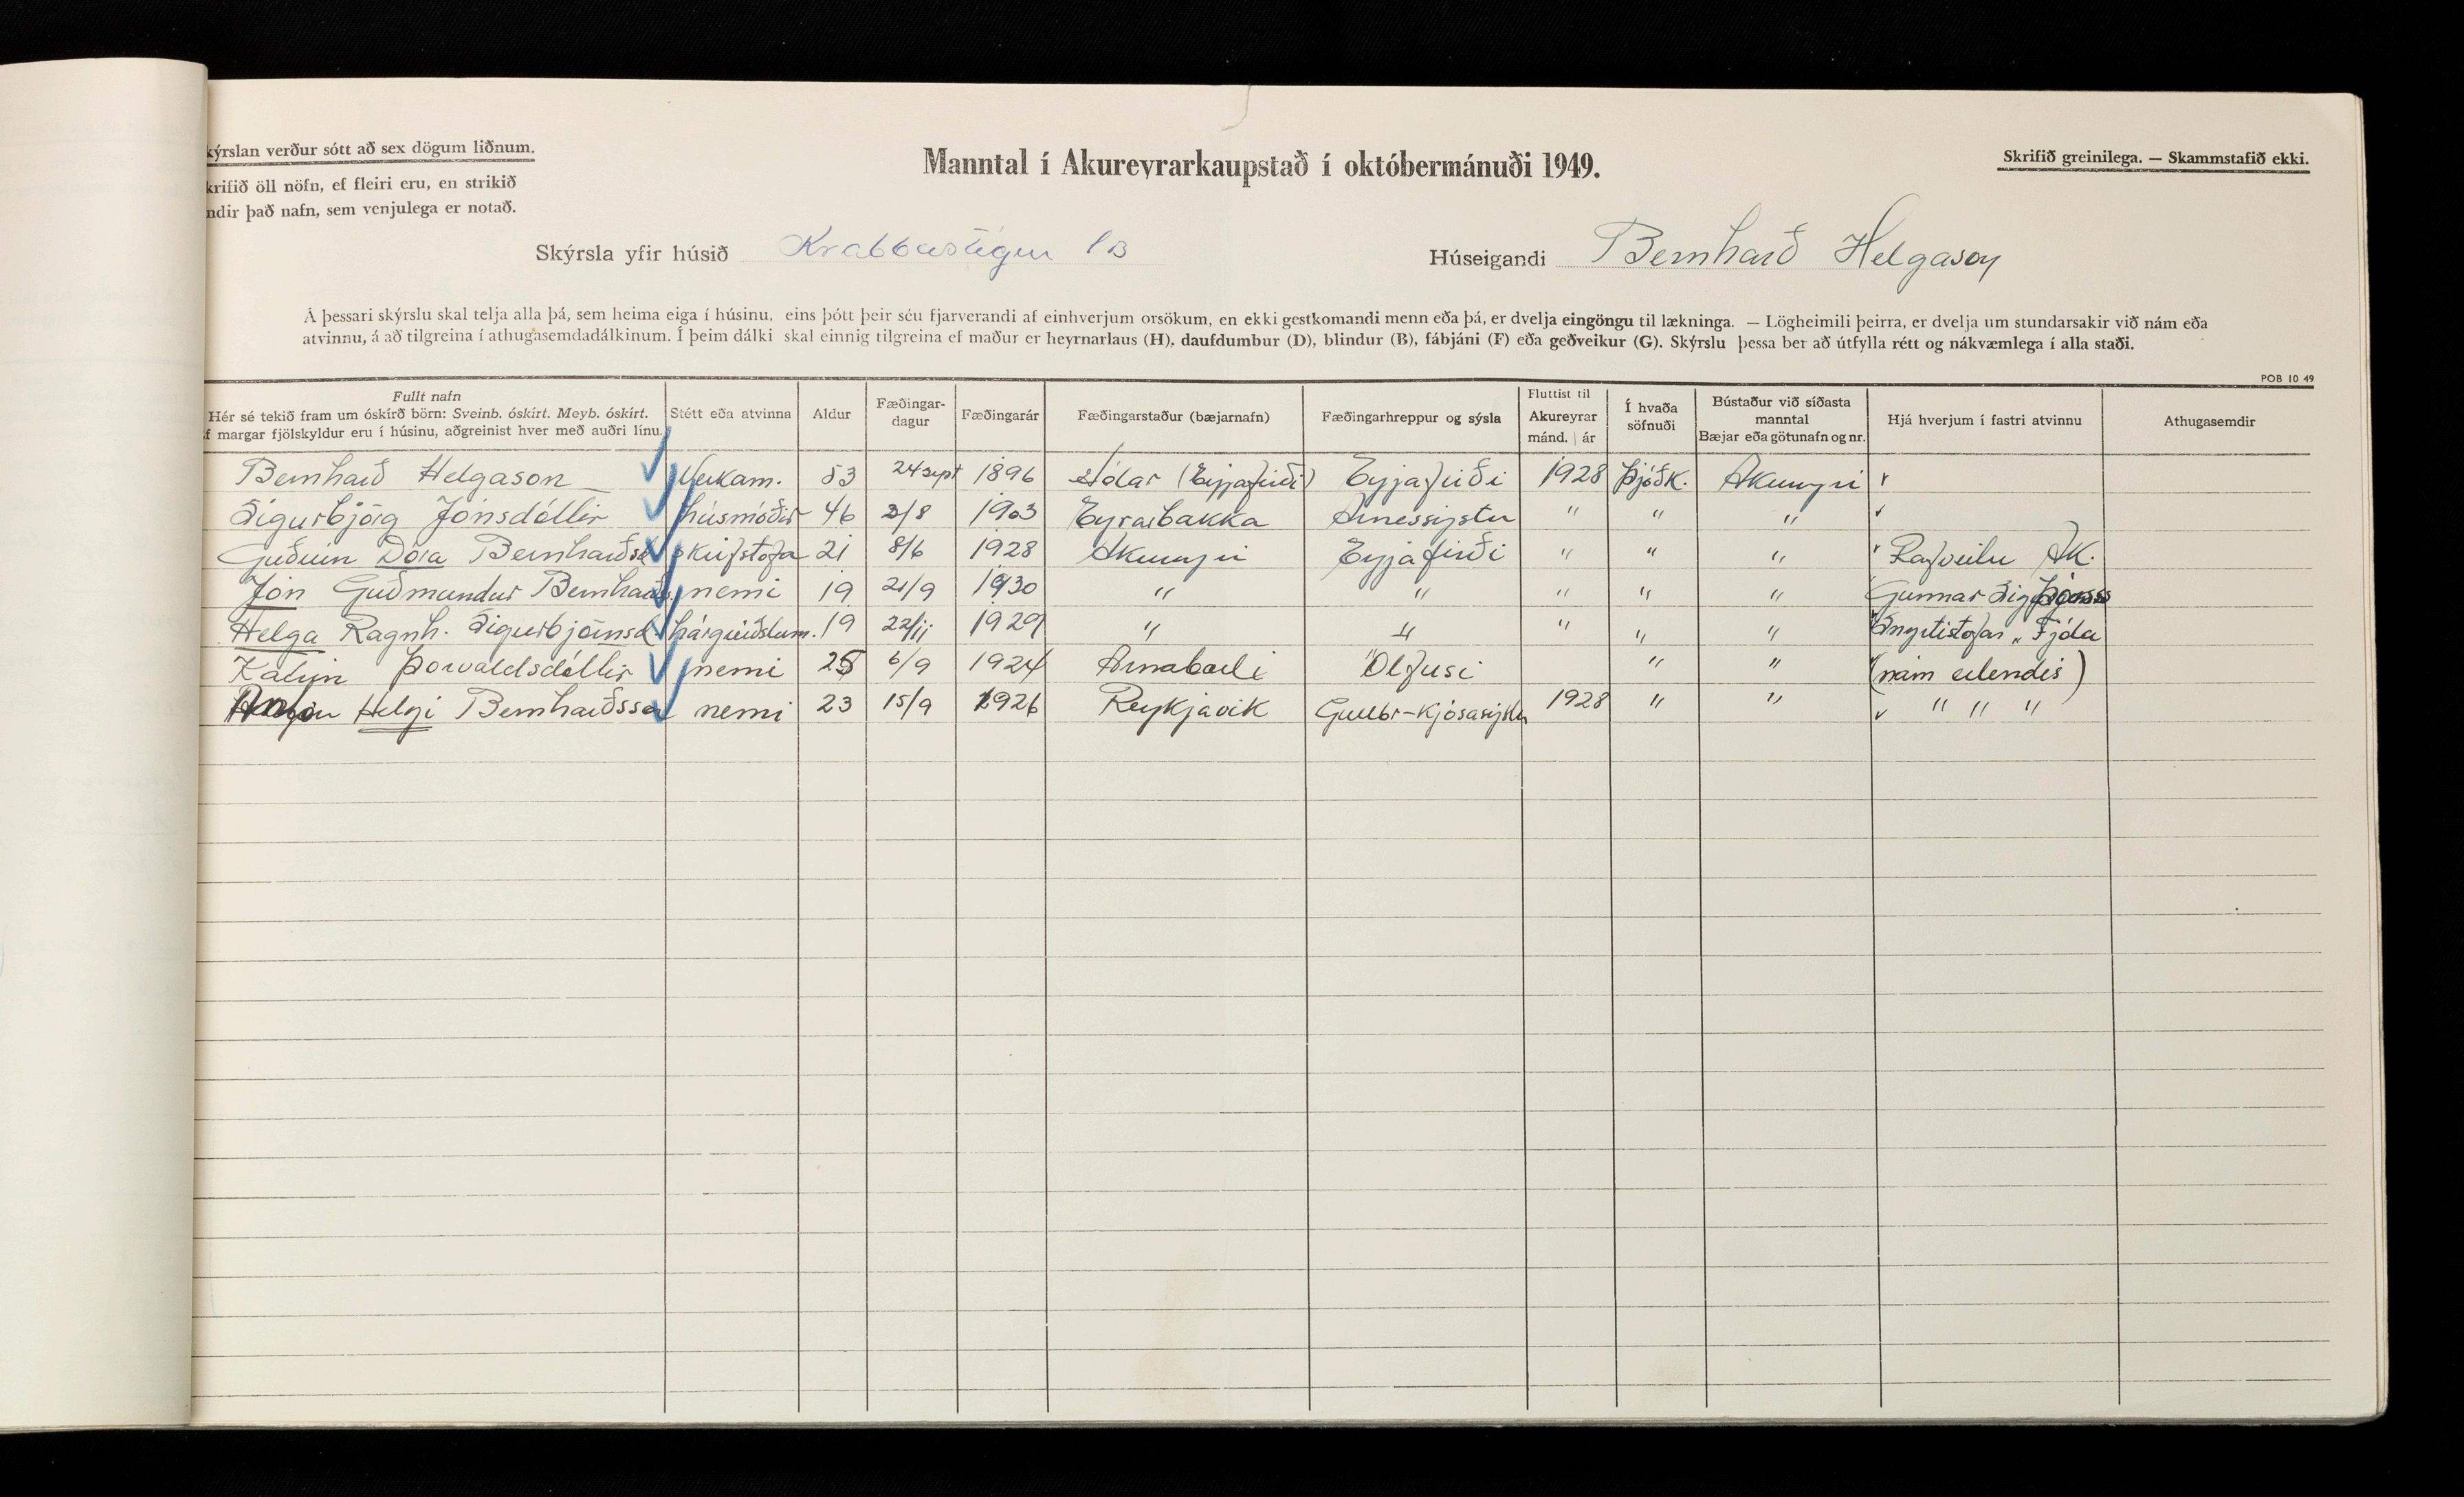 kýrslan verður sótt að sex dögum liðnum.
krifið öll nöfn, ef fleiri eru, en strikið
ndir það nafn, sem venjulega er notað.
Manntal í Akureyrarkaupstað í októbermánuði 1949.
Skrifið greinilega. — Skammstafið ekki.
Skýrsla yfir húsið Krabbastígur 1B
Húseigandi Bernharð Helgason
Á þessari skýrslu skal telja alla þá, sem heima eiga í húsinu, eins þótt þeir séu fjarverandi af einhverjum orsökum, en ekki gestkomandi menn eða þá, er dvelja eingöngu til lækninga. — Lögheimili þeirra, er dvelja um stundarsakir við nám eða
atvinnu, á að tilgreina í athugasemdadálkinum. Í þeim dálki skal einnig tilgreina ef maður er heyrnarlaus (H), daufdumbur (D), blindur (B), fábjáni (F) eða geðveikur (G). Skýrslu þessa ber að útfylla rétt og nákvæmlega í alla staði.
POB 10 49
Fullt nafn
Hér sé tekið fram um óskírð börn: Sveinb. óskírt. Meyb. óskírt.
f margar fjölskyldur eru í húsinu, aðgreinist hver með auðri línu.
Stétt eða atvinna
Aldur
Fæðingar-
dagur
Fæðingarár
Fæðingarstaður (bæjarnafn)
Fæðingarhreppur og sýsla
Fluttist til
Akureyrar
mánd. | ár
Í hvaða
söfnuði
Bústaður við síðasta
manntal
Bæjar eða götunafn og nr.
Hjá hverjum í fastri atvinnu
Athugasemdir
Bernharð Helgason Verkam. 53 24 sept 1896 Hólar (Eyjafirði) Eyjafirði 1928 Þjóðk. Akureyri
Sigurbjörg Jónsdóttir húsmóðir 46 2/8 1903 Eyrarbakka Árnessýslu " " "
Guðrún Dóra Bernharðsd skrifstofa 21 8/6 1928 Akureyri Eyjafirði " " " Rafveitu AK.
Jón Guðmundur Bernharðs. nemi 19 21/9 1930 " " " " " Gunnar
Helga Ragnh. Sigurbjörnsd. hárgreiðslum. 19 22/11 1929 " " " " " Snyrtistofan „Fjóla
Katrín Þorvaldsdóttir nemi 25 6/9 1924 Arnabæli Ölfusi " " (nám erlendis)
Helgi Bernharðsson nemi 23 15/9 1926 Reykjavík Gullbr-Kjósasýslu 1928 " " " " "